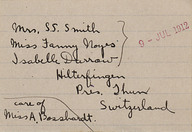 Mrs. S.S. Smith
Miss Fanny Noyes
Isabelle Darrow
9 - JUL. 1912
Hilterfingen
Près, Thun
Switzerland
care of
Miss A. Bosshardt.